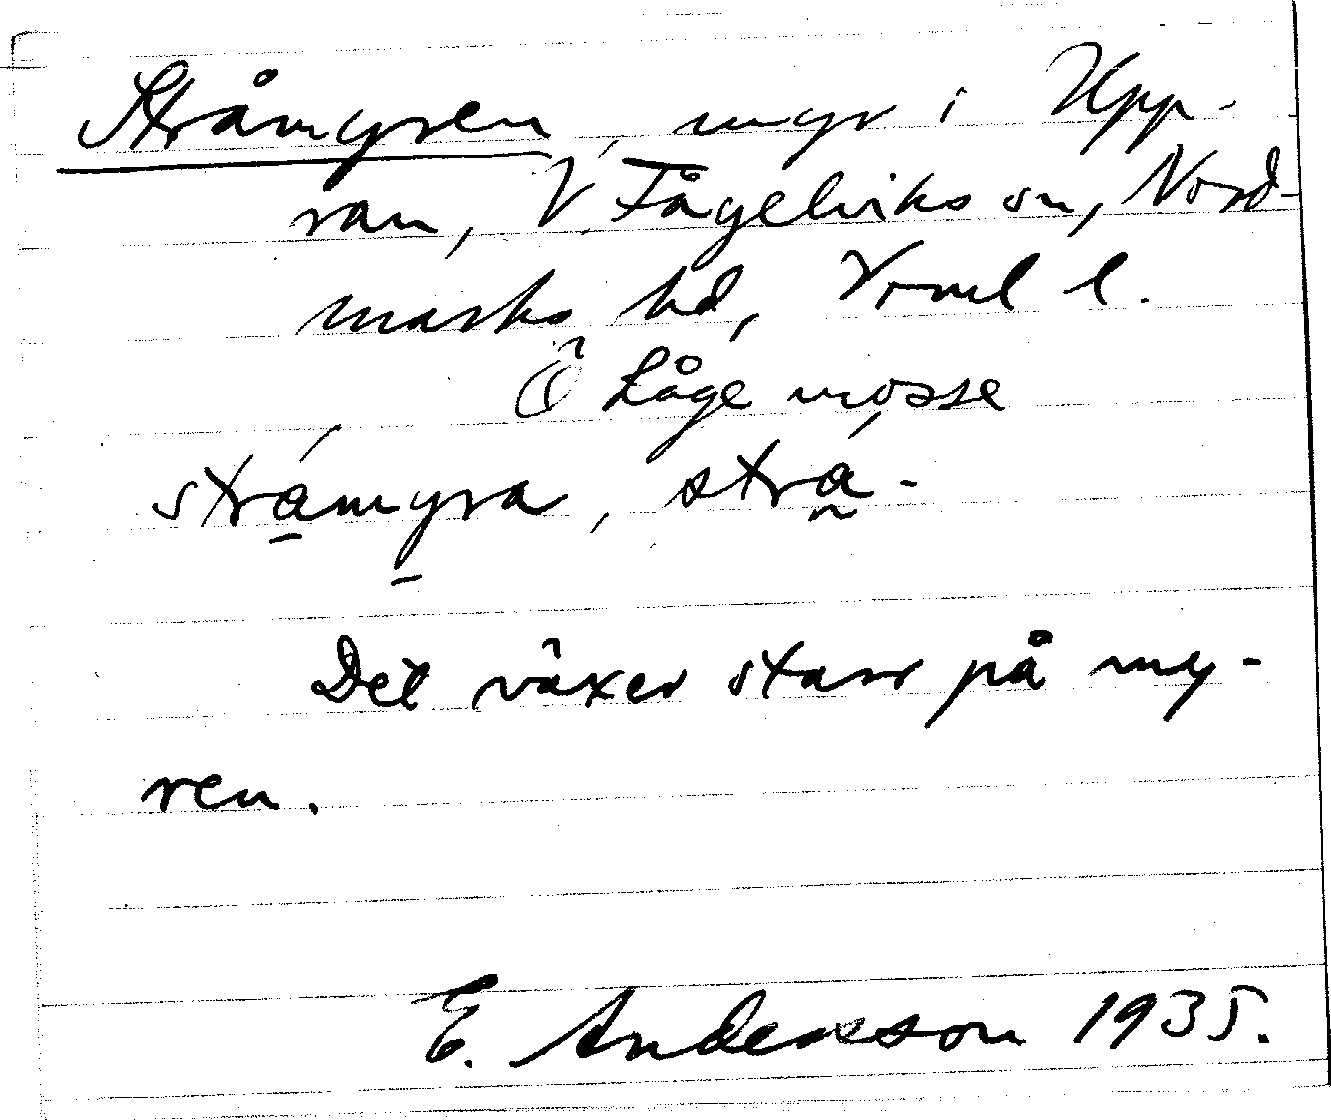 Stråmyren, myr i Upp-
ran, V. Fågelviks sn, Nord-
marks hd, Vrml l.
Ö Låge mosse
stråmyra, strå-
Det växer starr på my-
ren.
E. Andersson 1935.